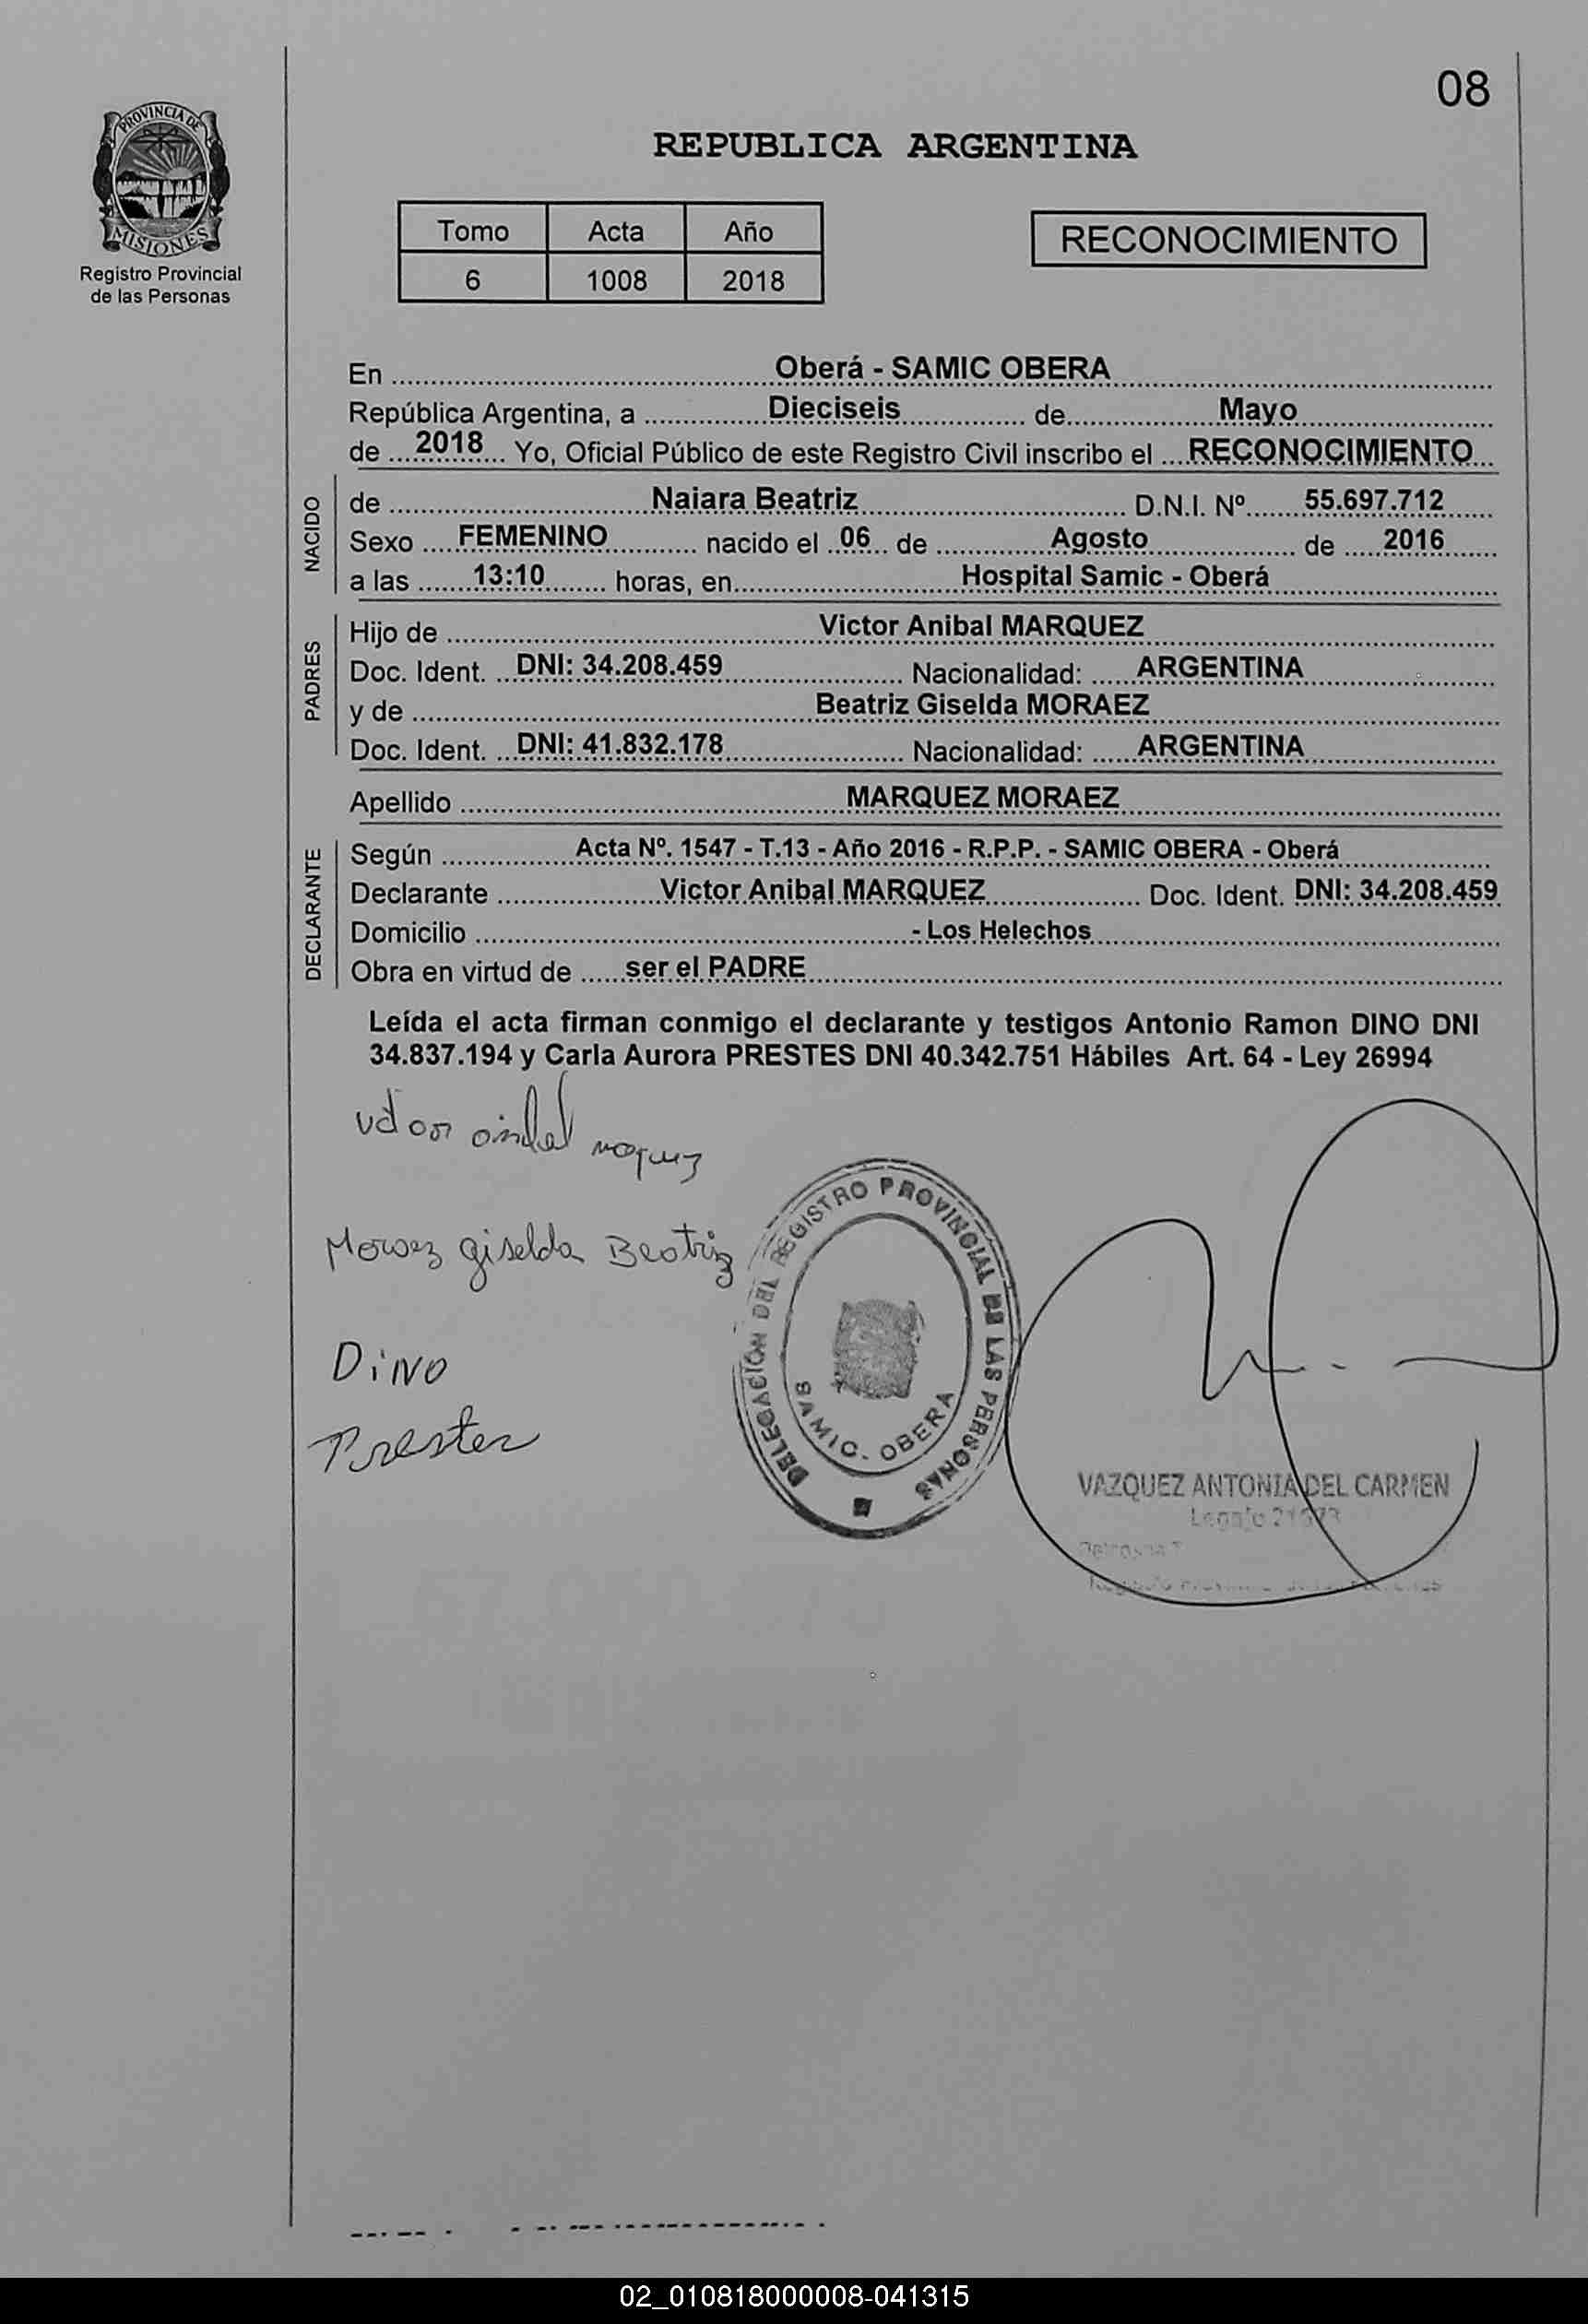 08
PROVINCIA DE
MISIONES
Registro Provincial
de las Personas
REPUBLICA ARGENTINA
Tomo Acta Año
6 1008 2018
RECONOCIMIENTO
En Oberá - SAMIC OBERA
República Argentina, a Dieciseis de Mayo
de 2018 Yo, Oficial Público de este Registro Civil inscribo el RECONOCIMIENTO
NACIDO
de Naiara Beatriz D.N.I. Nº 55.697.712
Sexo FEMENINO nacido el 06 de Agosto de 2016
a las 13:10 horas, en Hospital Samic - Oberá
PADRES
Hijo de Victor Anibal MARQUEZ
Doc. Ident. DNI: 34.208.459 Nacionalidad: ARGENTINA
y de Beatriz Giselda MORAEZ
Doc. Ident. DNI: 41.832.178 Nacionalidad: ARGENTINA
Apellido MARQUEZ MORAEZ
DECLARANTE
Según Acta Nº. 1547 - T.13 - Año 2016 - R.P.P. - SAMIC OBERA - Oberá
Declarante Victor Anibal MARQUEZ Doc. Ident. DNI: 34.208.459
Domicilio - Los Helechos
Obra en virtud de ser el PADRE
Leída el acta firman conmigo el declarante y testigos Antonio Ramon DINO DNI
34.837.194 y Carla Aurora PRESTES DNI 40.342.751 Hábiles Art. 64 - Ley 26994
Moraez giselda Beatriz
DiNO
Prestes
DELEGACIÓN DEL REGISTRO PROVINCIAL DE LAS PERSONAS
SAMIC - OBERA
VAZQUEZ ANTONIA DEL CARMEN
Legajo
02_010818000008-041315